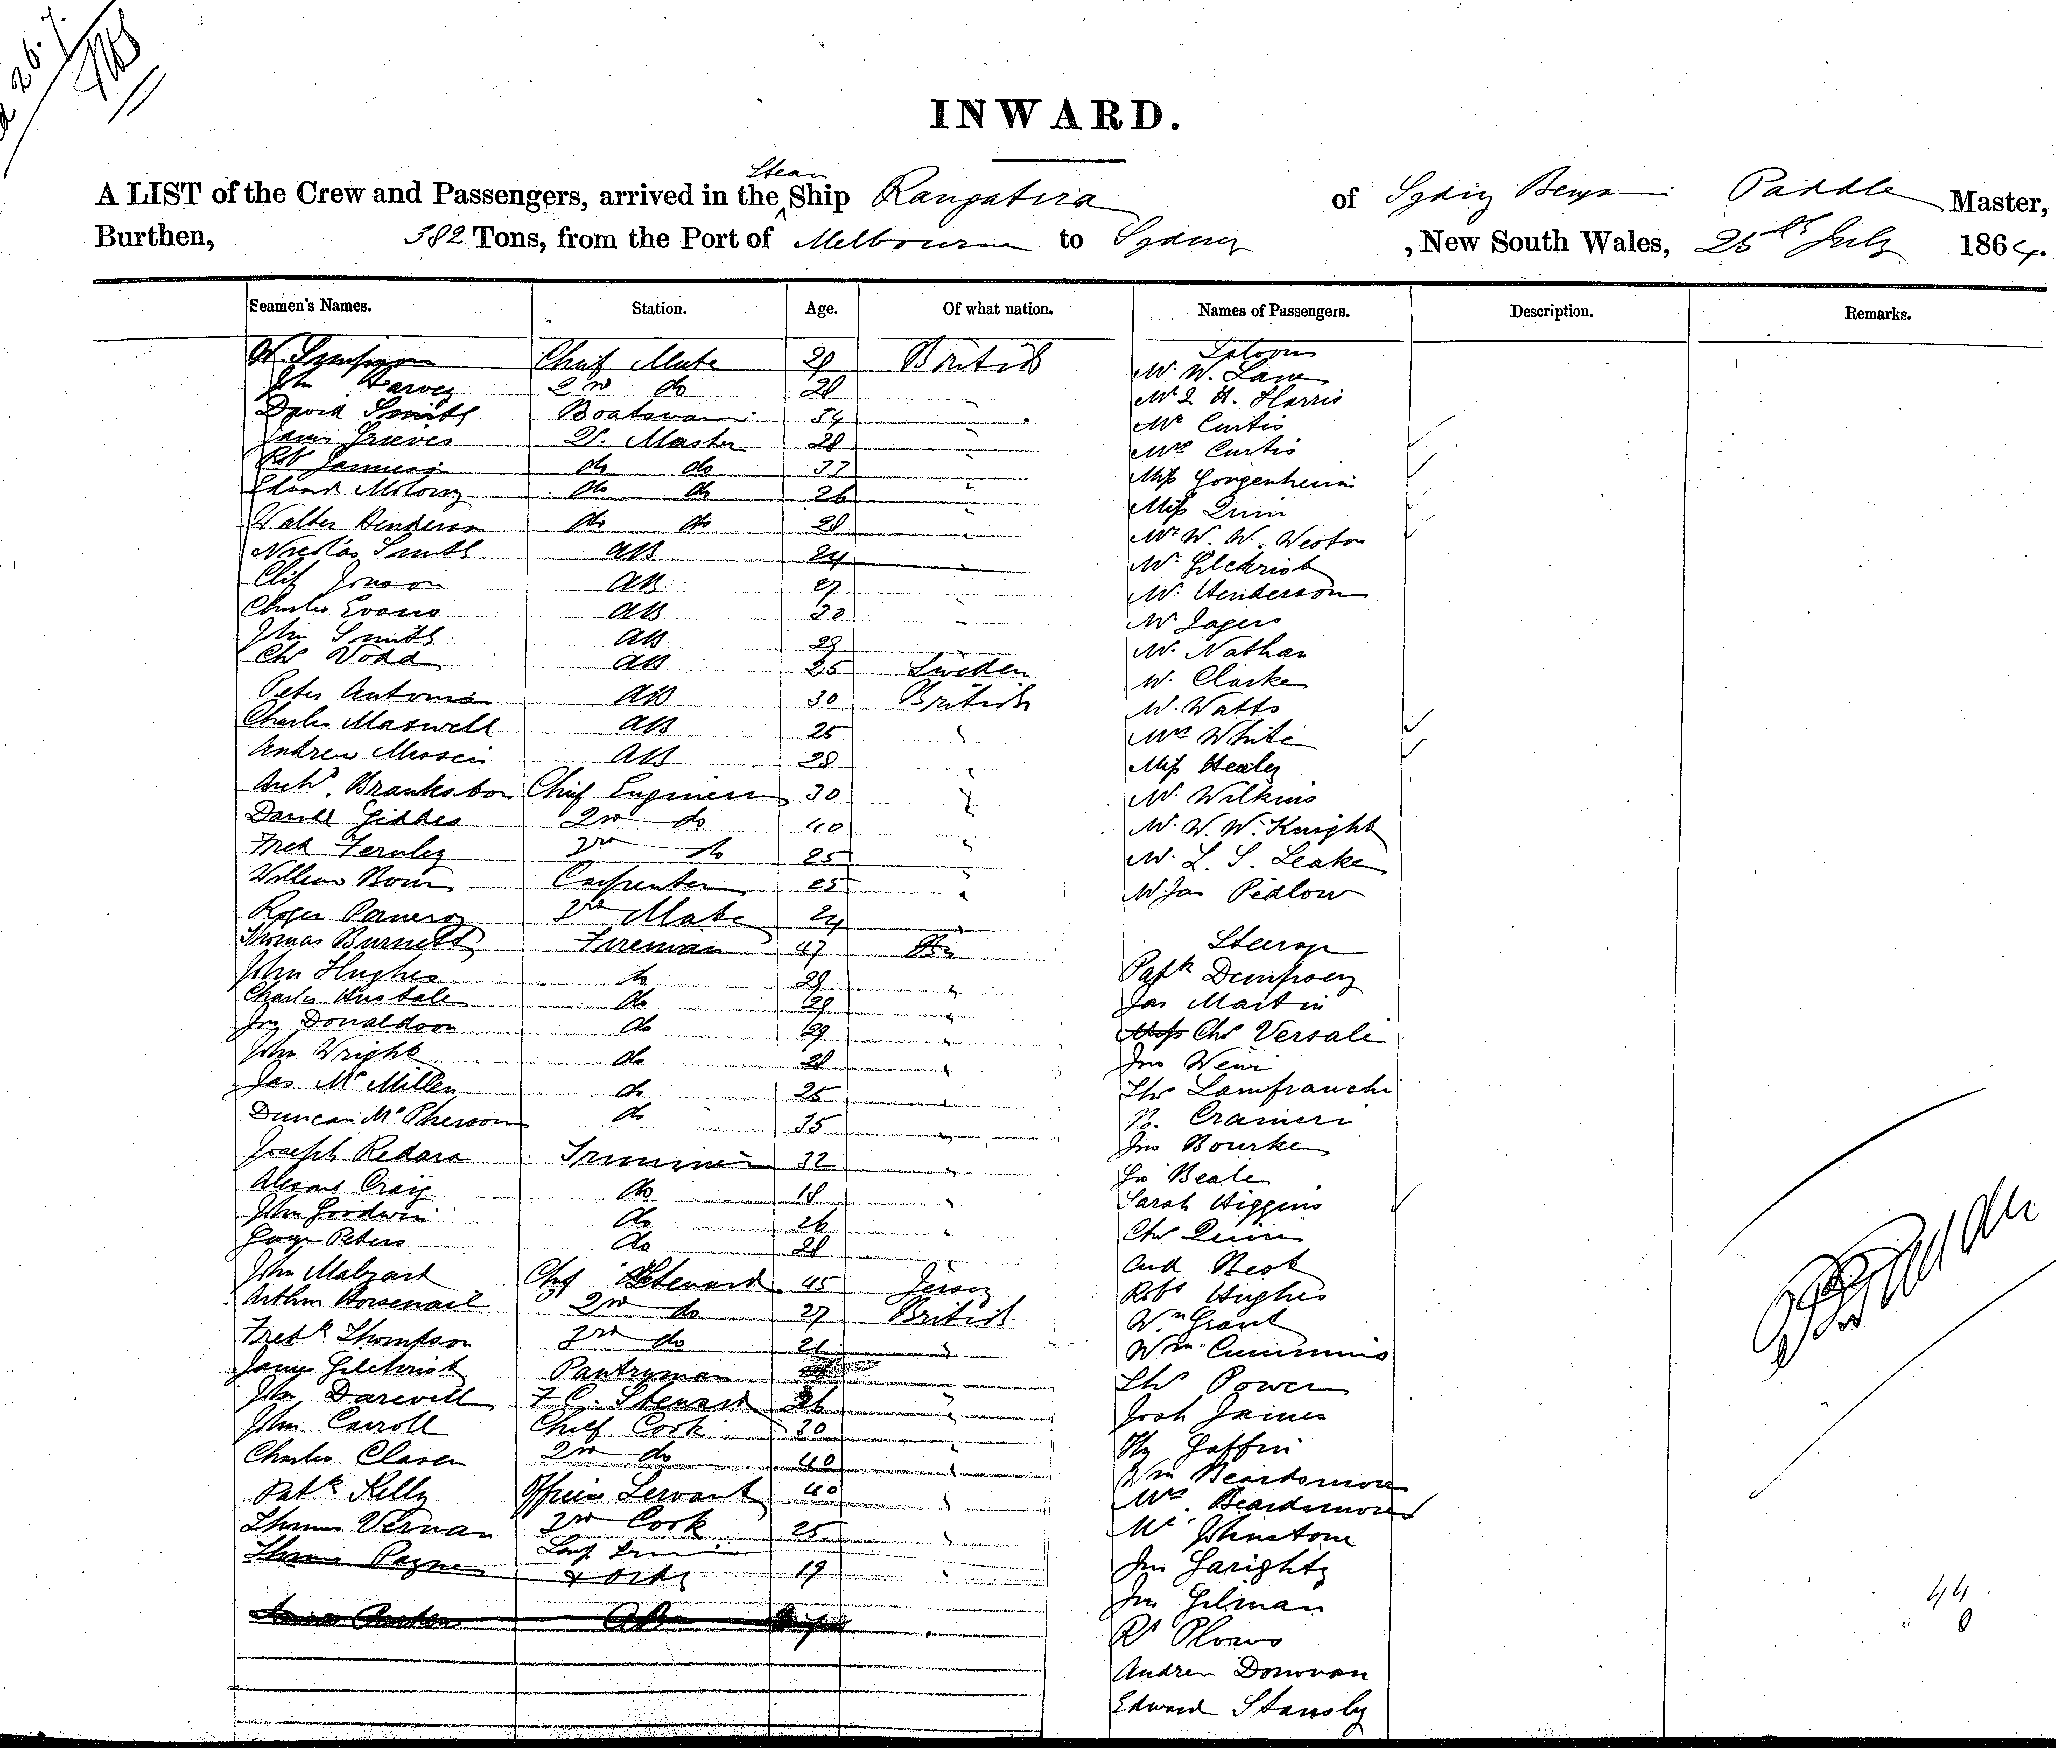 26.7.
INWARD.
Steam
A LIST of the Crew and Passengers, arrived in the Ship Rangatira of Sydney Benjn Paddle Master,
Burthen, 382 Tons, from the Port of Melbourne to Sydney, New South Wales, 25th July 1864.
Seamen's Names. Station. Age. Of what nation. Names of Passengers. Description. Remarks.
Saloon
W. Chief Mate 29 British Mr W. Lane
Jn Harvey 2nd do 28 " Mr H. Harris
David Smith Boatswain 34 " Mr Curtis
James Grieves Qr. Master 28 " Mrs Curtis
Robt do do 33 " Miss Gorgenheim
Edward do do 26 " Miss Quin
Walter Henderson do do 28 " Mr W. W. Weston
Nicolas Smith AB 24 " Mr Gilchrist
AB 27 " Mr Henderson
Charles Evans AB 30 " Mr Jagers
John Smith AB 29 " Mr Nathan
Chs Wood AB 25 Sweden Mr Clarke
Peter Antonio AB 30 British Mr Watts
Charles Maxwell AB 25 " Mrs White
Andrew AB 28 " Miss Healey
Archd. Branksbon Chief Engineer 30 " Mr Wilkins
David Gibbes 2nd do 40 " Mr W. W. Knight
Fred Fernley 3rd do 25 " Mr L. S. Leake
William Carpenter 25 " Mr Jas Pedlow
Roger Pomeroy 3rd Mate 24 "
Steerage
Thomas Burnett Fireman 47 Patk Dempsey
John Hughes do 29 " Jas Martin
Charles do 29 " Chs Versali
Jos Donaldson do 29 " Jno Weir
John Wright do 28 " Thos Lamfranchi
Jas McMillen do 25 " Crameri
Duncan McPherson do 35 " Jno Bourke
Joseph Redara Trimmer 32 " Beale
Craig do 18 " Sarah Higgins
John Goodwin do 26 " Chs Quinn
George Peters do 28 " And Best
John Malzard Chf Steward 45 Jersey Robt Hughes
Arthur 2nd do 27 British Wm Grant
Fredk Thompson 3rd do 21 " Wm Cummins
James Gilchrist Pantryman Thos Power
Jno Darevill F. C. Steward 26 " Josh James
John Carroll Chief Cook 30 Hy Gaffin
Charles Claren 2nd do 40 " Wm Beardsmore
Patk Kelly Officers Servant 40 " Mrs Beardsmore
Thomas Vernan 3rd Cook 25 " Mr Johnstone
Thomas Payne 19 " Jno Garighty
Jno Gilman
AB Rt Plows
Andrew Donovan
Edward Stansby
44
8